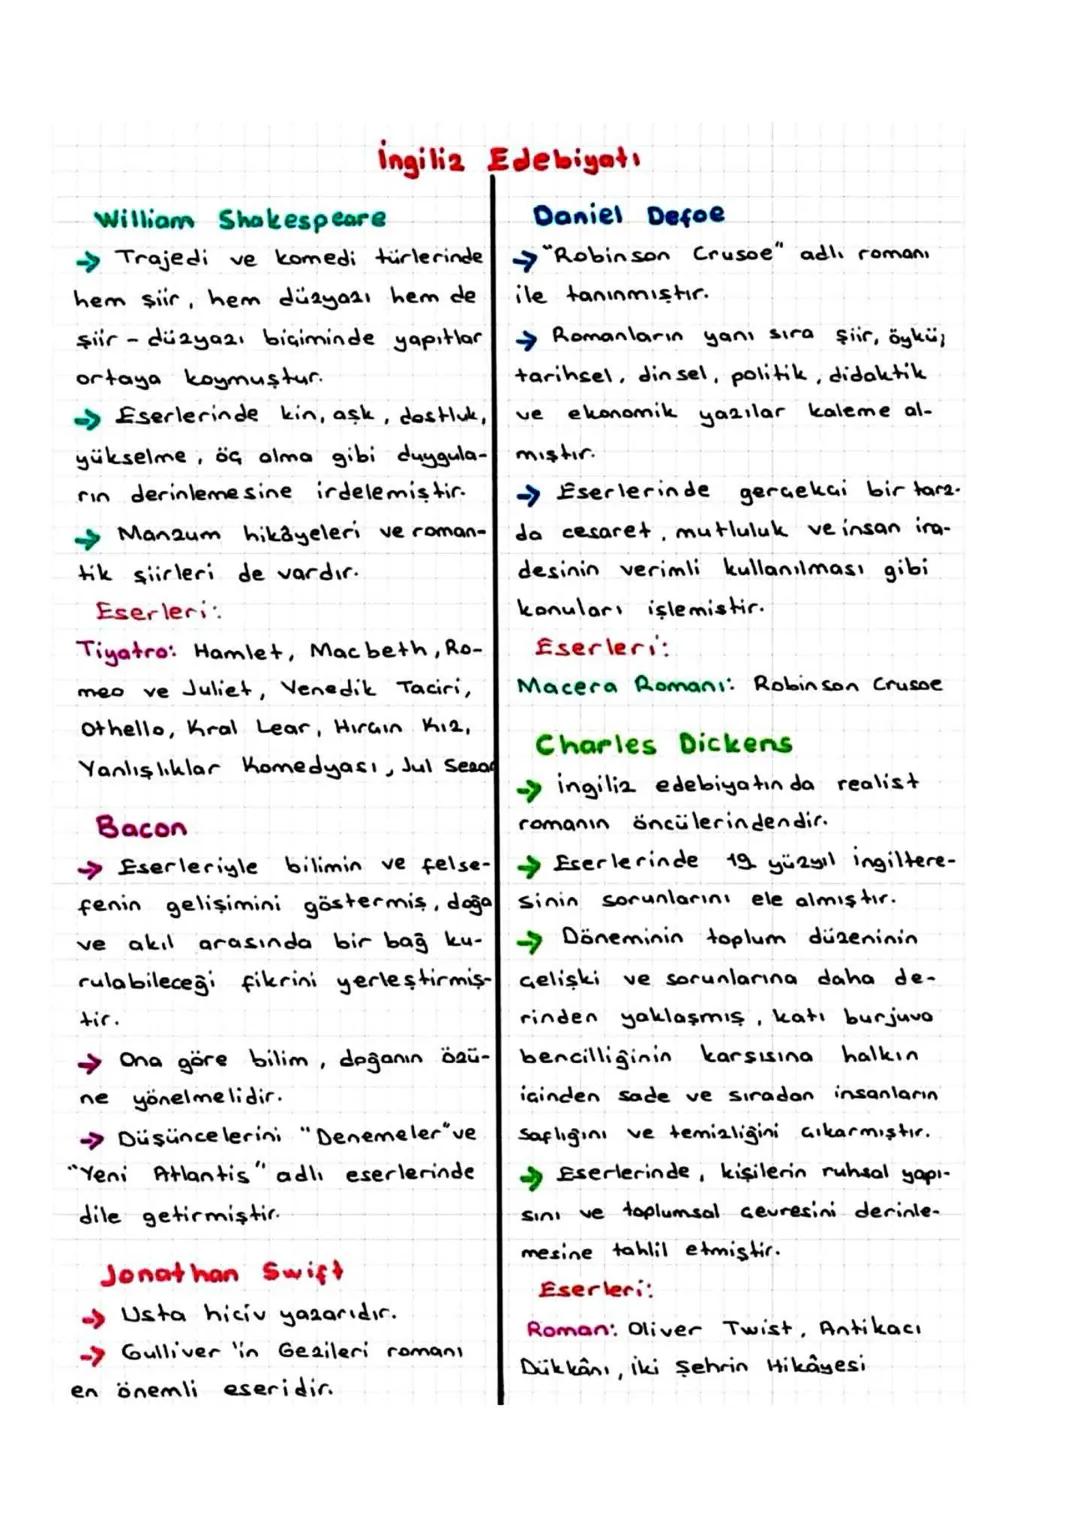 İngiliz Edebiyatı
William Shakespeare
→ Trajedi ve komedi türlerinde
hem şiir, hem düzyazı hem de
şiir - düzyazı biçiminde yapıtlar
ortaya koymuştur.
→ Eserlerinde kin, aşk, dostluk,
yükselme, öç alma gibi duygula-
rın derinlemesine irdelemiştir.
→ Manzum hikâyeleri ve roman-
tik şiirleri de vardır.
Eserleri:
Tiyatro: Hamlet, Macbeth, Ro-
meo ve Juliet, Venedik Taciri,
Othello, Kral Lear, Hırçın Kız,
Yanlışlıklar Komedyası, Jul Sezar
Bacon
→ Eserleriyle bilimin ve felse-
fenin gelişimini göstermiş, doğa
ve akıl arasında bir bağ ku-
rulabileceği fikrini yerleştirmiş-
tir.
→ Ona göre bilim, doğanın özü-
ne yönelmelidir.
→ Düşüncelerini "Denemeler" ve
"Yeni Atlantis" adlı eserlerinde
dile getirmiştir.
Jonathan Swift
→ Usta hiciv yazarıdır.
→ Gulliver 'in Gezileri romanı
en önemli eseridir.
Daniel Defoe
→ "Robinson Crusoe" adlı romanı
ile tanınmıştır.
→ Romanların yanı sıra şiir, öykü;
tarihsel, dinsel, politik, didaktik
ve ekonomik yazılar kaleme al-
mıştır.
→ Eserlerinde gerçekçi bir tarz-
da cesaret, mutluluk ve insan ira-
desinin verimli kullanılması gibi
konuları işlemistir.
Eserleri:
Macera Romanı: Robinson Crusoe
Charles Dickens
→ İngiliz edebiyatında realist
romanın öncülerindendir.
→ Eserlerinde 19 yüzyıl İngiltere-
sinin sorunlarını ele almıştır.
→ Döneminin toplum düzeninin
çelişki ve sorunlarına daha de-
rinden yaklaşmış, katı burjuva
bencilliğinin karşısına halkın
içinden sade ve sıradan insanların
saflığını ve temizliğini çıkarmıştır.
→ Eserlerinde, kişilerin ruhsal yapı-
sını ve toplumsal çevresini derinle-
mesine tahlil etmiştir.
Eserleri:
Roman: Oliver Twist, Antikacı
Dükkânı, İki Şehrin Hikâyesi